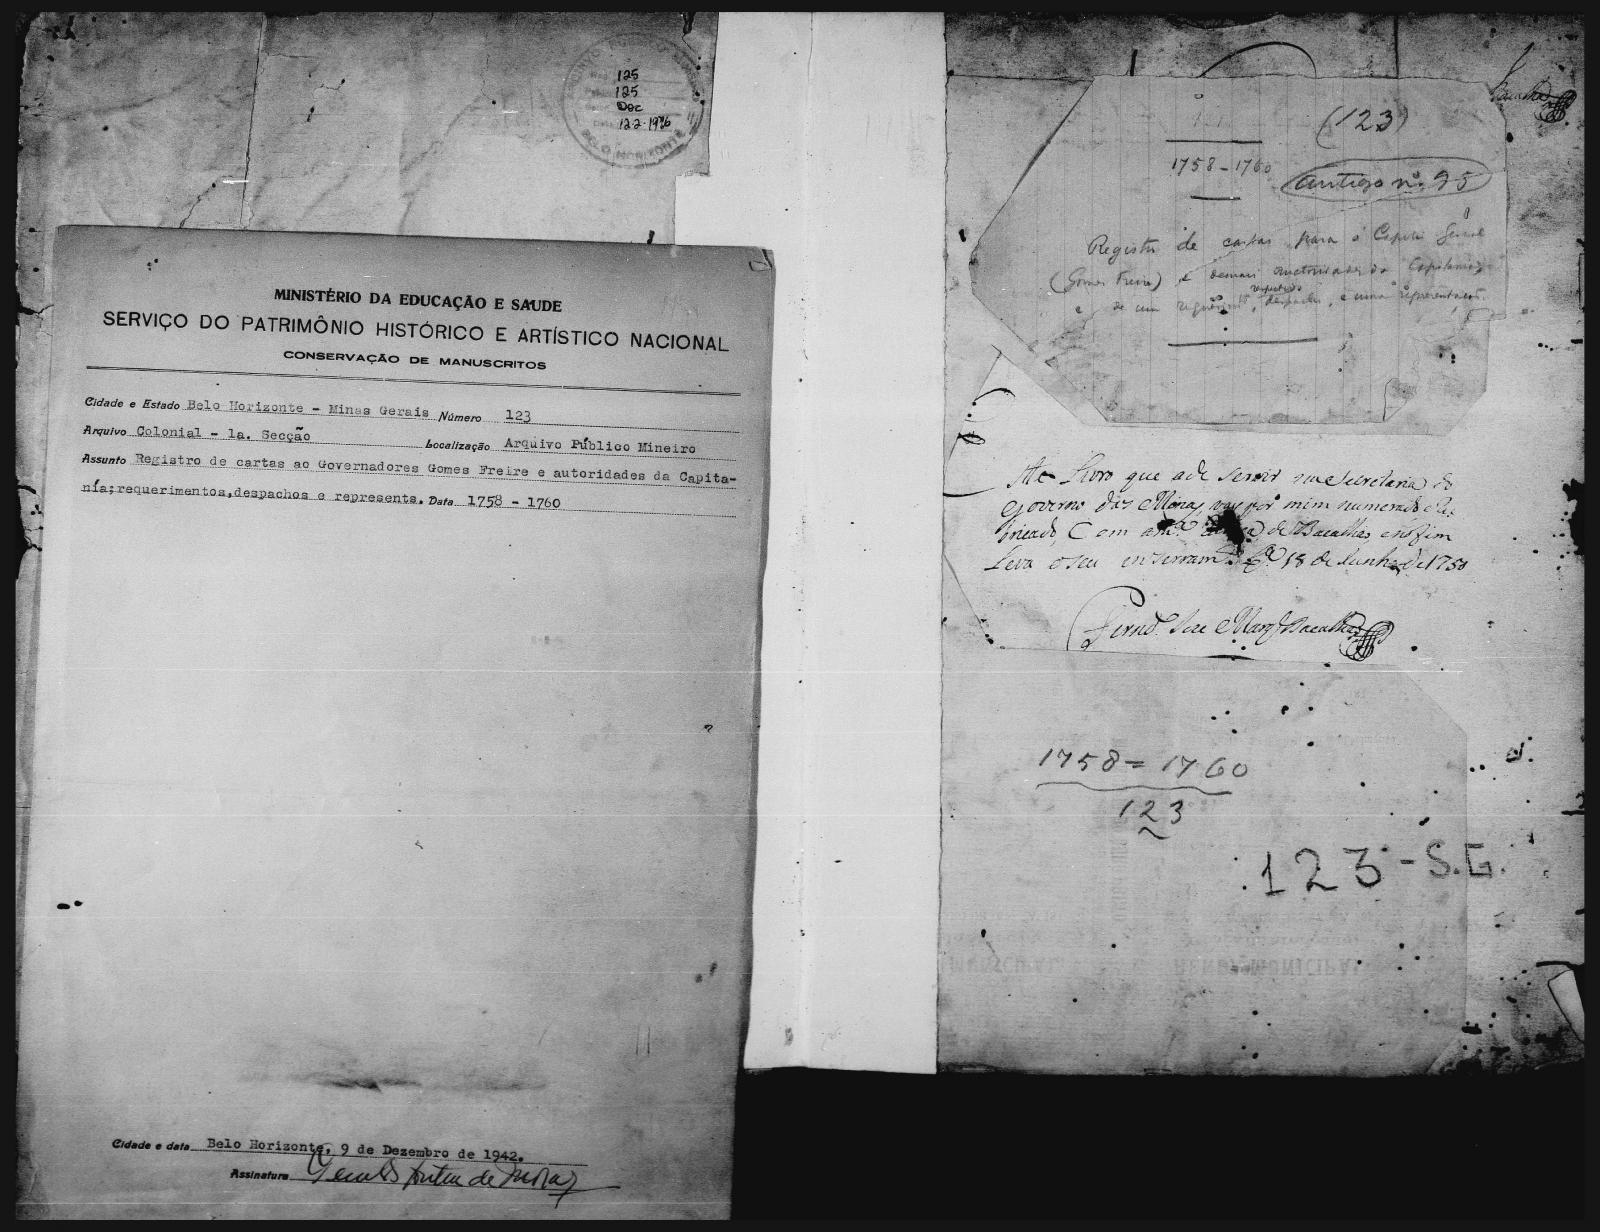 125
125
Doc
12-2-1976
BELO HORIZONTE
MINISTÉRIO DA EDUCAÇÃO E SAUDE
SERVIÇO DO PATRIMÔNIO HISTÓRICO E ARTÍSTICO NACIONAL
CONSERVAÇÃO DE MANUSCRITOS
Cidade e Estado Belo Horizonte - Minas Gerais Número 123
Arquivo Colonial - 1a. Secção Localização Arquivo Público Mineiro
Assunto Registro de cartas ao Governadores Gomes Freire e autoridades da Capita-
nía;requerimentos,despachos e represents. Data 1758 - 1760
Cidade e data Belo Horizonte, 9 de Dezembro de 1942.
Assinatura
(123)
1758-1760
Antigo nº 95
Registro de cartas para o Capitão General
(Gomes Freire) e demais auctoridades da Capitania
e de um requerimto, respectivo despacho, e uma representação.
Livro que ade servir na Secretaria do
Governo das Minas, vay por mim numerado e Ru
bricado, Com a de Bacalhao, e no fim
Leva o seu enserramto 18 de Junho de 1750
Bacalhao
1758=1760
123
123-S.G.
RENDA MUNICIPAL